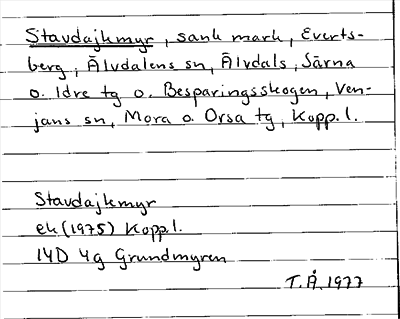 Stavdajkmyr, sank mark, Everts-
berg, Älvdalens sn, Älvdals, Särna
o. Idre tg o. Besparingsskogen, Ven-
jans sn, Mora o. Orsa tg, Kopp.l.
Stavdajkmyr
ek (1975) Kopp.l.
14D 4g Grundmyren
T.Å. 1977